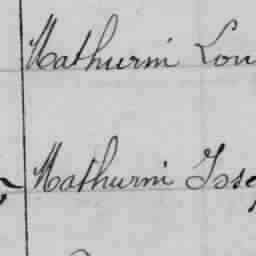 Mathurin Lou
Mathurin Jose